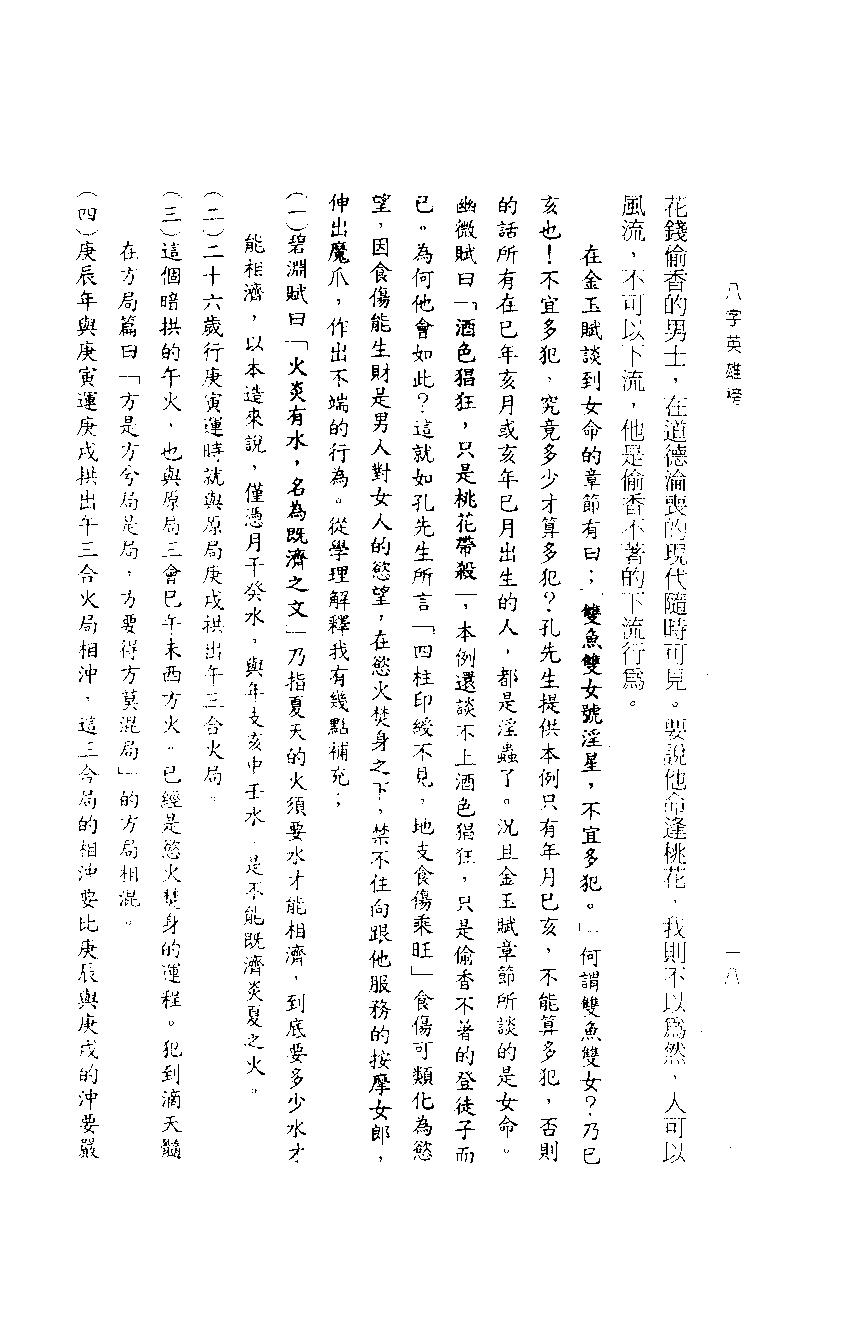 八字英雄榜
一八
花錢偷香的男士，在道德淪喪的現代隨時可見。要說他命逢桃花，我則不以爲然，人可以
風流，不可以下流，他是偷香不著的下流行爲。
在金玉賦談到女命的章節有曰；「雙魚雙女號淫星，不宜多犯。」何謂雙魚雙女？乃巳
亥也！不宜多犯，究竟多少才算多犯？孔先生提供本例只有年月巳亥，不能算多犯，否則
的話所有在巳年亥月或亥年巳月出生的人，都是淫蟲了。況且金玉賦章節所談的是女命。
幽微賦曰「酒色猖狂，只是桃花帶殺」，本例還談不上酒色猖狂，只是偷香不著的登徒子而
已。為何他會如此？這就如孔先生所言「四柱印綬不見，地支食傷乘旺」食傷可類化為慾
望，因食傷能生財是男人對女人的慾望，在慾火焚身之下，禁不住向跟他服務的按摩女郎，
伸出魔爪，作出不端的行為。從學理解釋我有幾點補充；
(一)碧淵賦曰「火炎有水，名為既濟之文」乃指夏天的火須要水才能相濟，到底要多少水才
能相濟，以本造來說，僅憑月干癸水，與年支亥中壬水，是不能既濟炎夏之火。
(二)二十六歲行庚寅運時就與原局庚戌拱出午三合火局。
(三)這個暗拱的午火，也與原局三會巳午未西方火。已經是慾火焚身的運程。犯到滴天髓
在方局篇曰「方是方兮局是局，方要得方莫混局」的方局相混。
(四)庚辰年與庚寅運庚戌拱出午三合火局相沖，這三合局的相沖要比庚辰與庚戌的沖要嚴